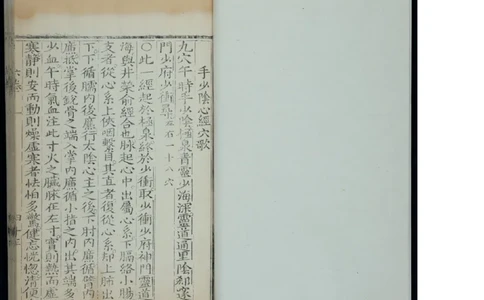 手少陰心經穴歌
九穴午時手少陰極泉青靈少海深靈道通里陰郄邃
門少府少衝尋左右一十八穴
○此一經起於極泉終於少衝取少衝少府神門靈道
海與井滎俞經合也脉起心中出屬心系下膈絡小腸
支者從心系上俠咽繫目其直者復從心系却上肺出
下下循臑內後廉行太陰心主之後下肘內廉循臂內
廉抵掌後銳骨之端入掌內廉循小指之內出其端多
少血午時氣血注此寸火之臟脉在左寸實則熱而虛
寒靜則安而動則燥虛寒者怯怕多驚健忘恍惚清便